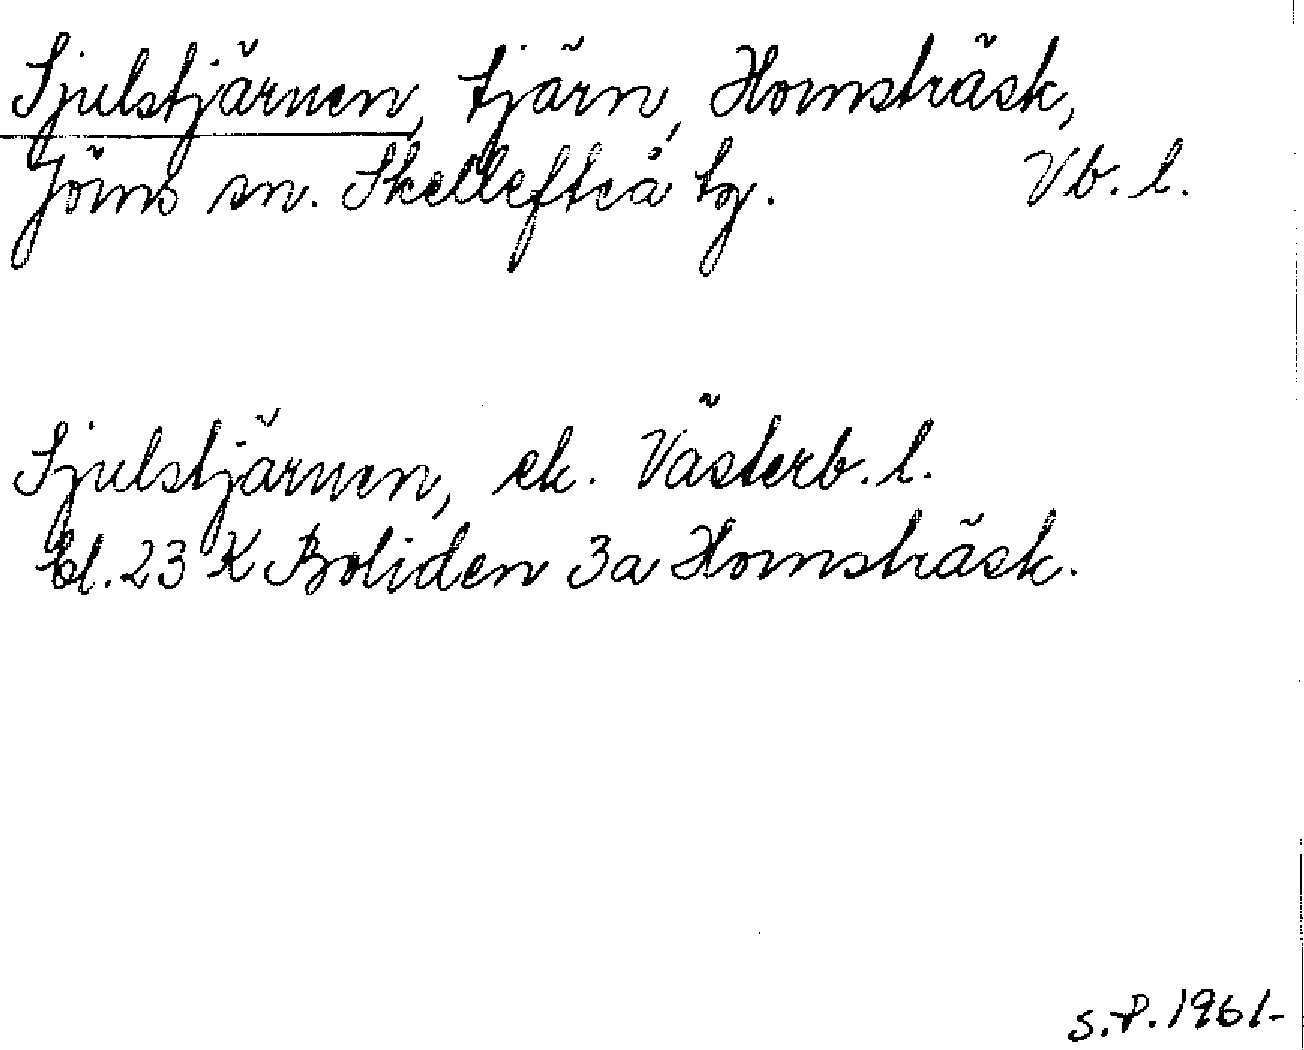 Sjulstjärnen, tjärn, Homsträsk,
Jörns sn. Skellefteå tg. Vb. l.
Sjulstjärnen, ek. Västerb. l.
bl. 23 K Boliden 3a Homsträsk.
S.P. 1961-